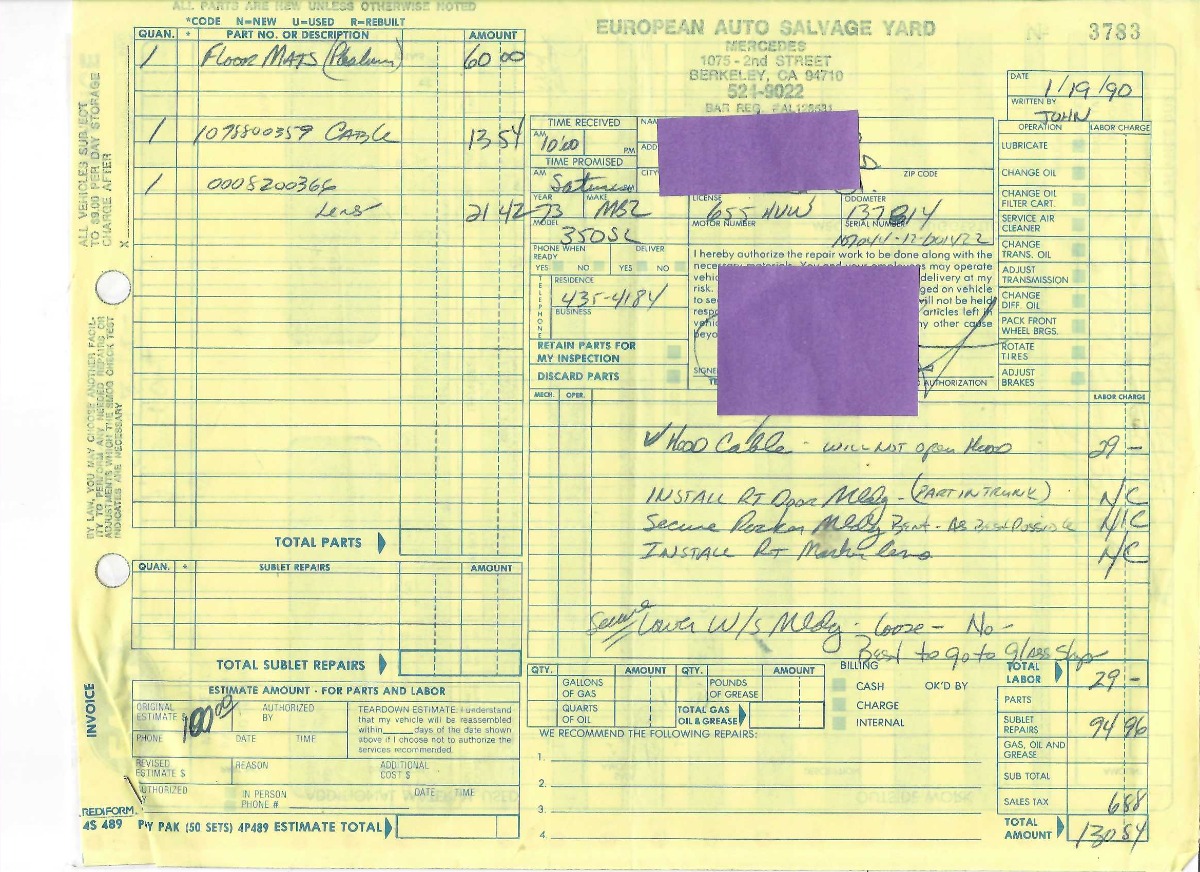 ALL PARTS ARE NEW UNLESS OTHERWISE NOTED
*CODE N=NEW U=USED R=REBUILT
QUAN. * PART NO. OR DESCRIPTION AMOUNT
1 Floor Mats 60 00
1 1078800359 Cable 13 54
1 0008200366
Lens 21 42
TOTAL PARTS
QUAN. * SUBLET REPAIRS AMOUNT
TOTAL SUBLET REPAIRS
ALL VEHICLES SUBJECT
TO $9.00 PER DAY STORAGE
CHARGE AFTER X
BY LAW, YOU MAY CHOOSE ANOTHER FACIL-
ITY TO PERFORM ANY NEEDED REPAIRS OR
ADJUSTMENTS WHICH THE SMOG CHECK TEST
INDICATES ARE NECESSARY
INVOICE
ESTIMATE AMOUNT - FOR PARTS AND LABOR
ORIGINAL ESTIMATE $ 100.00 AUTHORIZED BY
PHONE DATE TIME
TEARDOWN ESTIMATE. I understand
that my vehicle will be reassembled
within ____ days of the date shown
above if I choose not to authorize the
services recommended.
REVISED ESTIMATE $ REASON ADDITIONAL COST $
AUTHORIZED IN PERSON PHONE # DATE TIME
REDIFORM
4S 489 PW PAK (50 SETS) 4P489 ESTIMATE TOTAL
EUROPEAN AUTO SALVAGE YARD
MERCEDES
1075 - 2nd STREET
BERKELEY, CA 94710
524-9022
BAR REG.
No 3783
DATE 1/19/90
WRITTEN BY JOHN
TIME RECEIVED
AM 10:00 PM
TIME PROMISED
AM
NAM
ADD
CITY
ZIP CODE
YEAR 73 MAKE MBZ LICENSE 655 HUW ODOMETER
MODEL 350SL MOTOR NUMBER SERIAL NUMBER
PHONE WHEN READY DELIVER
YES NO YES NO
TELEPHONE
RESIDENCE
435-4184
BUSINESS
RETAIN PARTS FOR
MY INSPECTION
DISCARD PARTS
I hereby authorize the repair work to be done along with the
necessary materials. You and your employees may operate
vehic delivery at my
risk. ged on vehicle
to se vill not be held
resp articles left in
vehic ny other cause
beyo
SIGNE
AUTHORIZATION
OPERATION LABOR CHARGE
LUBRICATE
CHANGE OIL
CHANGE OIL FILTER CART.
SERVICE AIR CLEANER
CHANGE TRANS. OIL
ADJUST TRANSMISSION
CHANGE DIFF. OIL
PACK FRONT WHEEL BRGS.
ROTATE TIRES
ADJUST BRAKES
MECH. OPER. LABOR CHARGE
✓ Hood Cable - will not open Hood 29 -
INSTALL RT Door Mldg - (PART IN TRUNK) N/C
Secure Rocker Mldg Bent - As Best Possible N/C
INSTALL RT Marker lens N/C
Secure Lower W/S Mldg - Loose - No -
Best to go to Glass Shop
QTY. AMOUNT QTY. AMOUNT
GALLONS OF GAS POUNDS OF GREASE
QUARTS OF OIL TOTAL GAS OIL & GREASE
BILLING
CASH OK'D BY
CHARGE
INTERNAL
WE RECOMMEND THE FOLLOWING REPAIRS:
1.
2.
3.
4.
TOTAL LABOR 29 -
PARTS
SUBLET REPAIRS 94 96
GAS, OIL AND GREASE
SUB TOTAL
SALES TAX 6 88
TOTAL AMOUNT 130 84